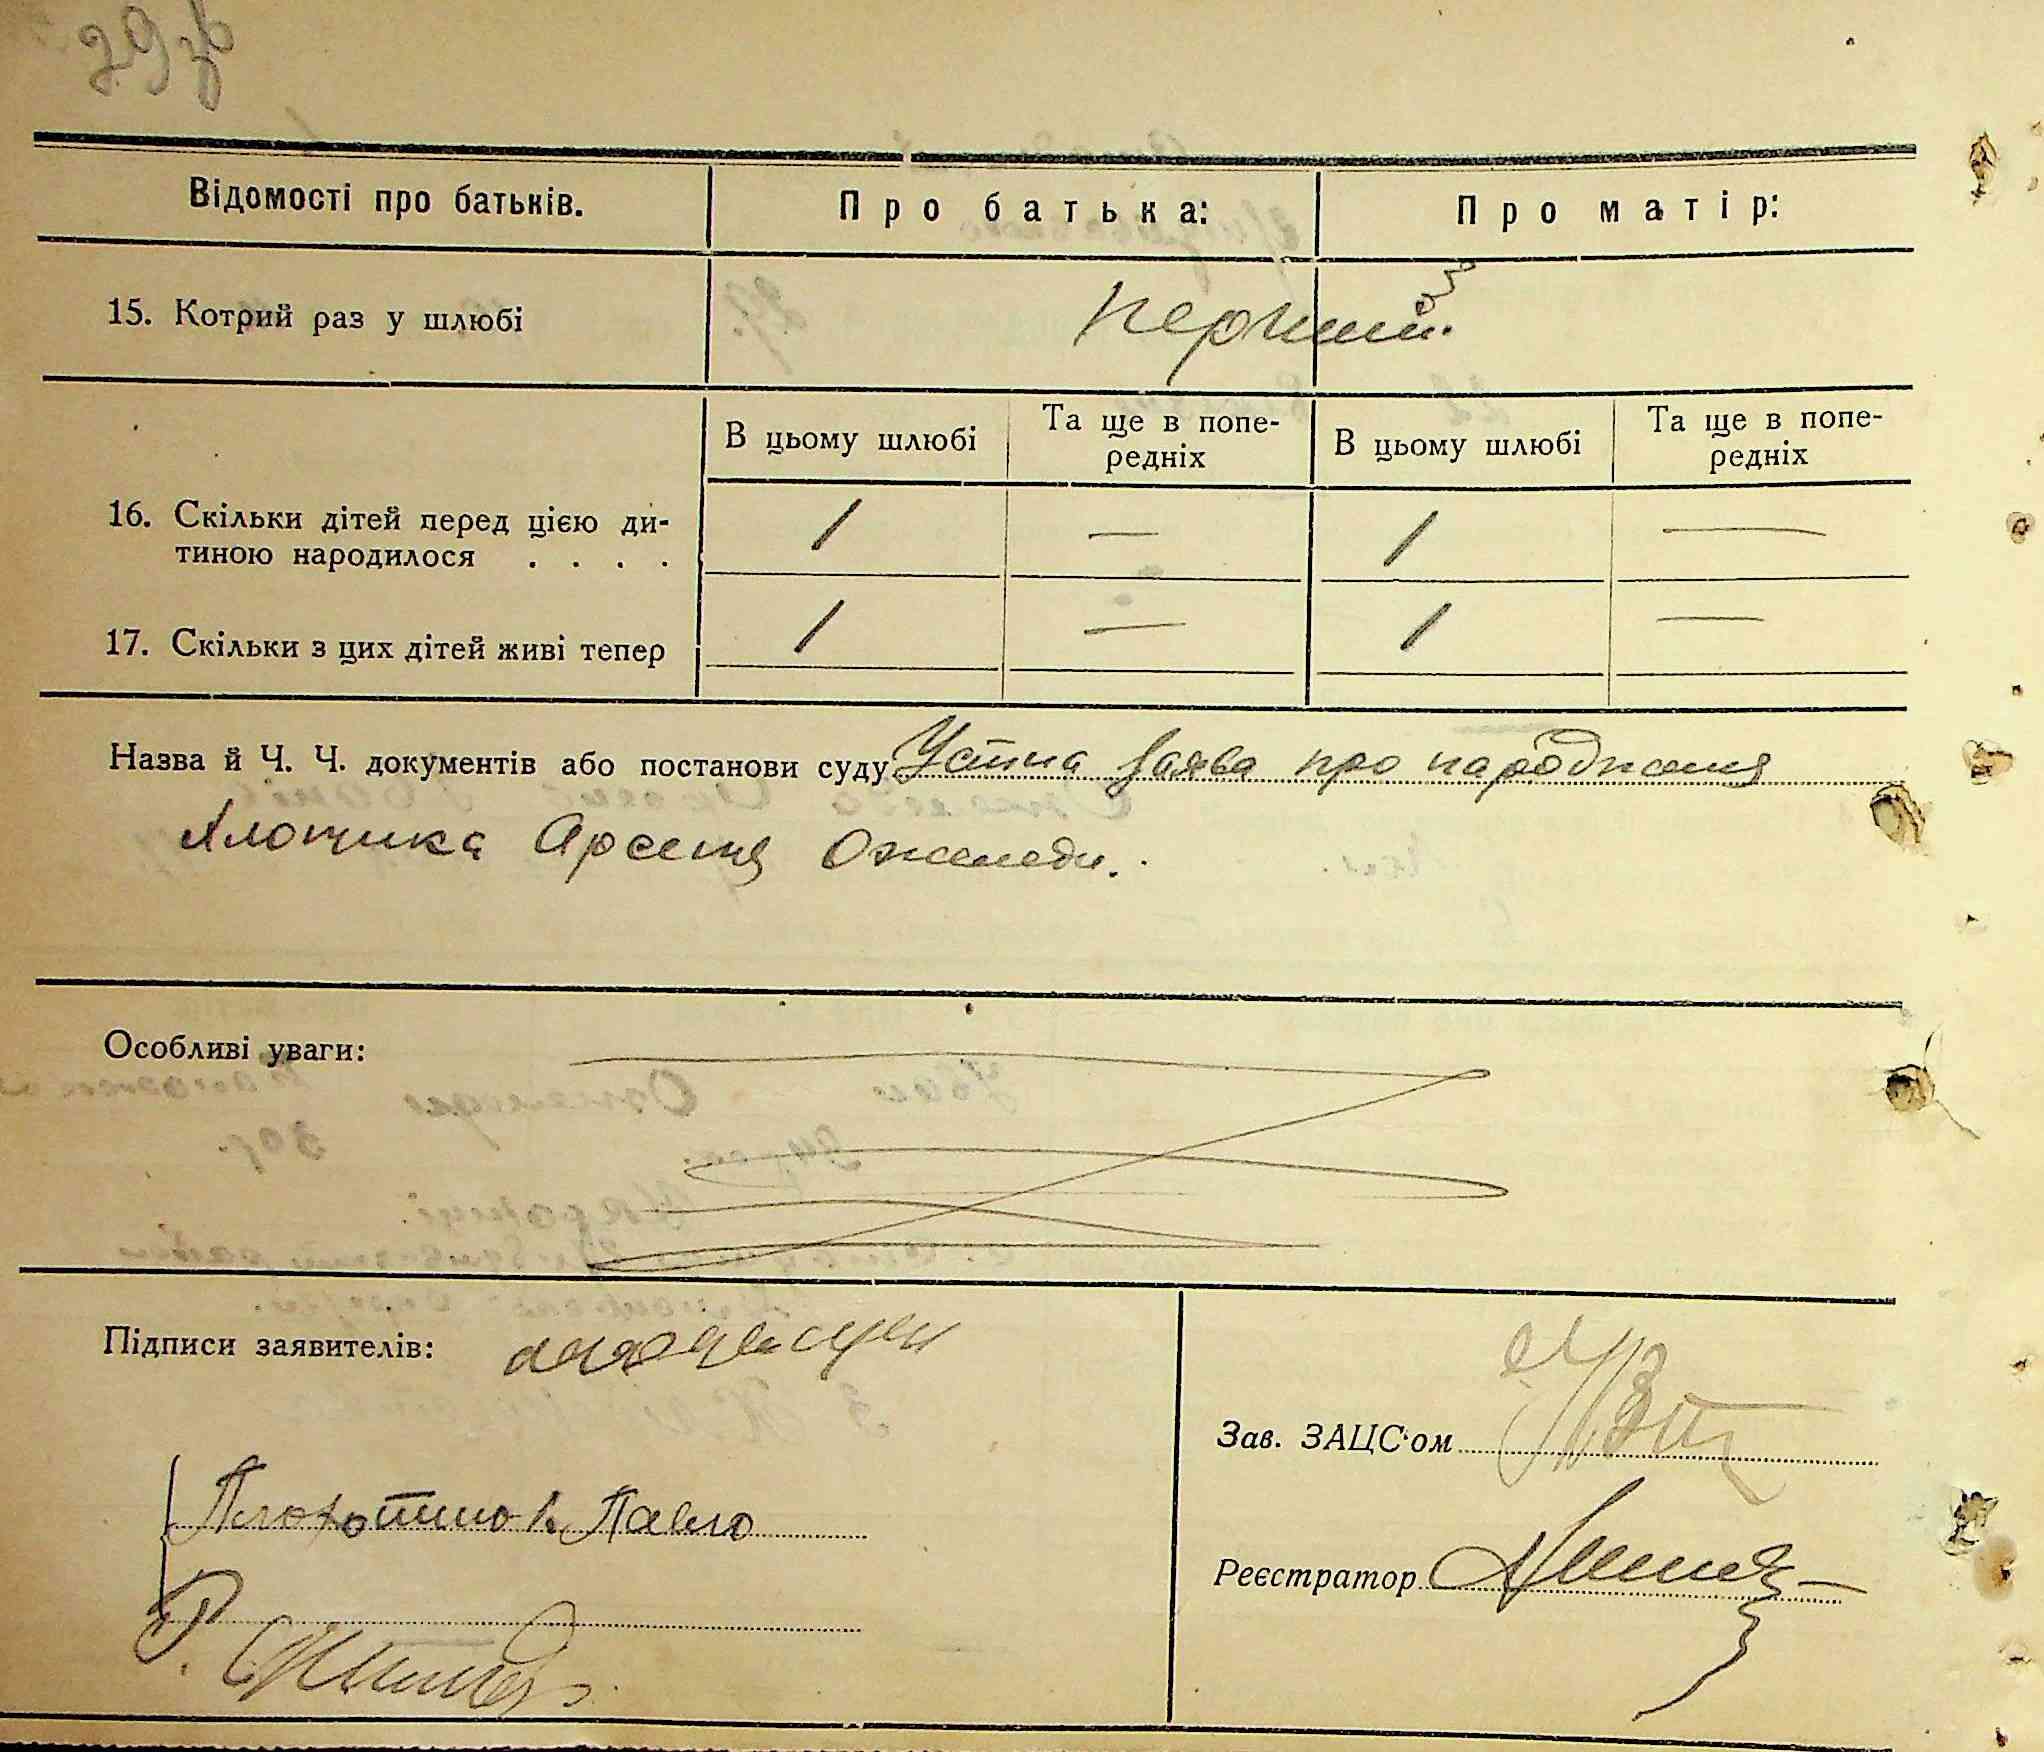 29зв
Відомості про батьків. Про батька: Про матір:
15. Котрий раз у шлюбі перший
В цьому шлюбі Та ще в попе- В цьому шлюбі Та ще в попе-
редніх редніх
16. Скільки дітей перед цією ди-
тиною народилося . . . . 1 — 1 —
17. Скільки з цих дітей живі тепер 1 — 1 —
Назва й Ч. Ч. документів або постанови суду Устна заява про народження
Хлопчика Арсеня Ожеледи.
Особливі уваги:
Підписи заявителів:
Зав. ЗАЦС'ом
Павло
Реєстратор